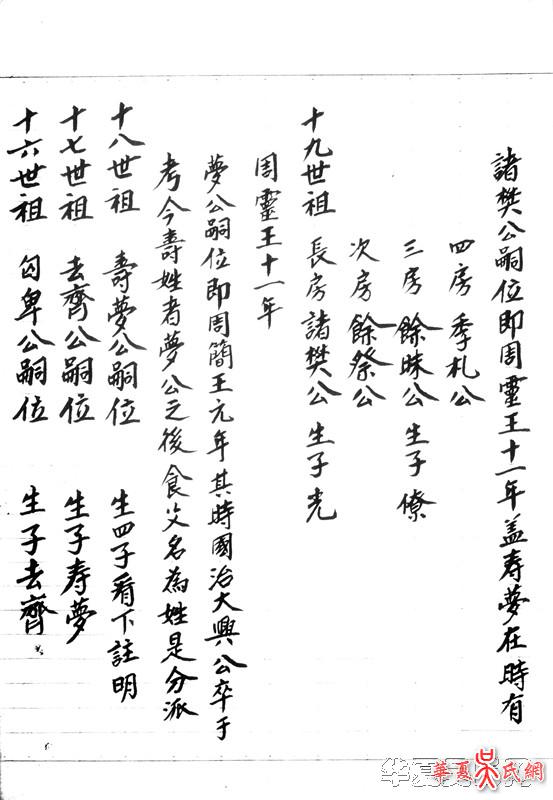 十六世祖 勾卑公嗣位 生子去齊
十七世祖 去齊公嗣位 生子寿夢
十八世祖 壽夢公嗣位 生四子看下註明
考今壽姓者夢公之後食父名為姓是分派
夢公嗣位即周簡王元年其時國治大興公卒于
周靈王十一年
十九世祖 長房諸樊公 生子光
次房 餘祭公
三房 餘昧公 生子僚
四房 季札公
諸樊公嗣位即周靈王十一年盖寿夢在時有
華夏吳氏網